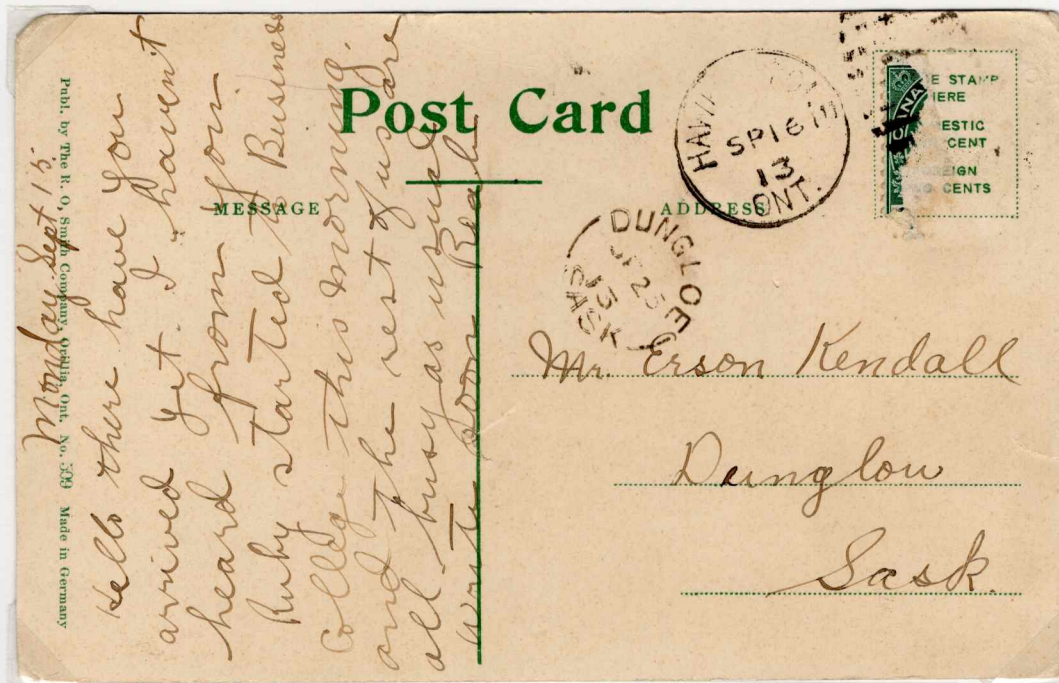 Post Card
MESSAGE
ADDRESS
Publ. by The R. O. Smith Company, Orillia, Ont. No. 599 Made in Germany
Monday Sept 15
Hello there have you
arrived yet. I haven't
heard from you.
Ruby started to Business
College this morning.
and the rest of us are
all busy as usual
write soon
SP 16
13
ONT.
DUNGLOE
25
13
SASK
E STAMP
HERE
ESTIC
CENT
FOREIGN
CENTS
Mr. Erson Kendall
Dunglow
Sask.